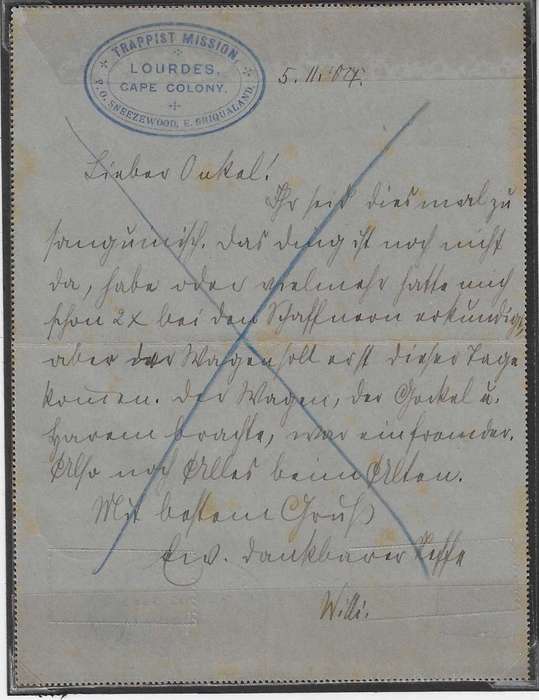 TRAPPIST MISSION
LOURDES,
CAPE COLONY.
P.O. SNEEZEWOOD, E. GRIQUALAND.
5.11.04.
Lieber Onkel!
Ihr seid diesmal zu
sanguinisch. Das ding ist noch nicht
da, habe oder vielmehr hatte mich
schon 2x bei den Schaffnern erkundigt,
aber der Wagen soll erst dieser Tage
kommen. Der Wagen, der Gockel u.
Harem brachte, war ein fremder.
Also noch Alles beim Alten.
Mit bestem Gruß
Ew. dankbarer Neffe
Willi.